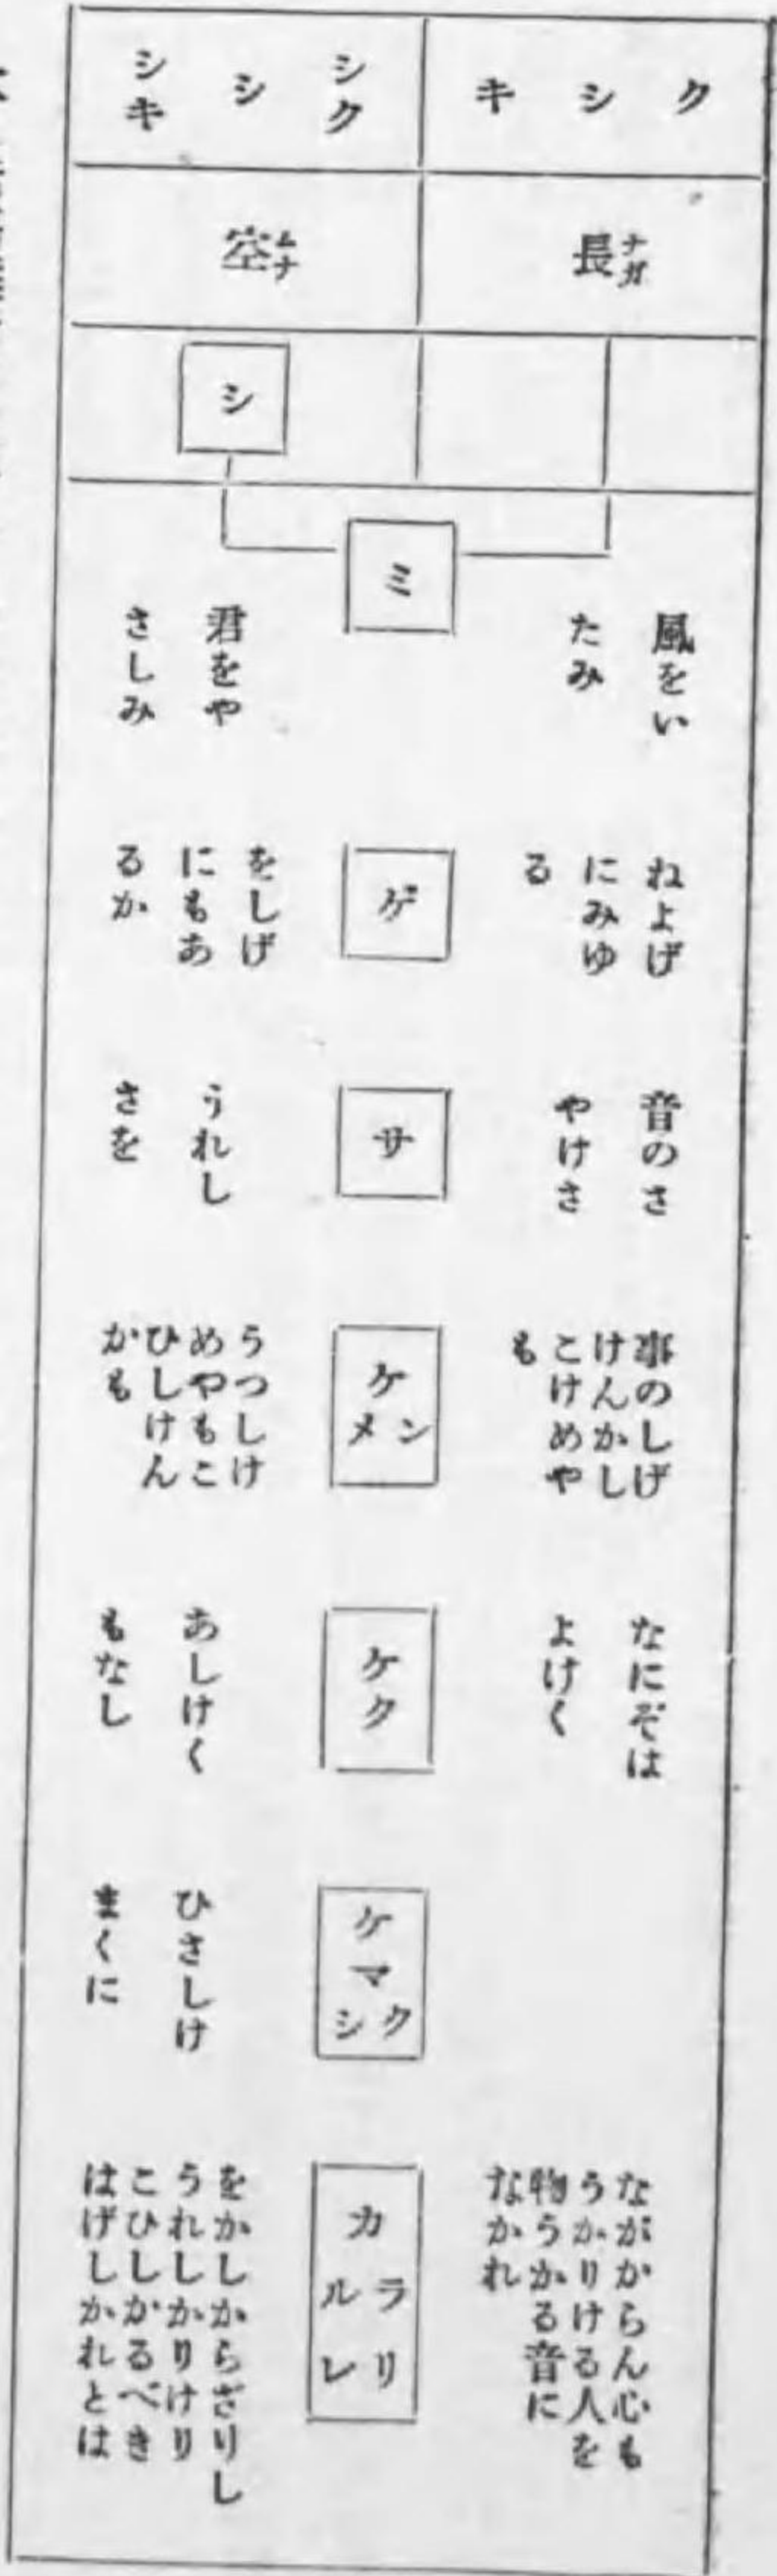 ク
シ
キ
シク
シ
シキ
長ナガ
空ムナ
シ
ミ
風をい
たみ
君をや
さしみ
ゲ
ねよげ
にみゆ
る
をしげ
にもあ
るか
サ
音のさ
やけさ
うれし
さを
ケ
ン
メ
事のしげ
けんかし
こけめや
も
うつしけ
めやもこ
ひしけん
かも
ケク
なにぞは
よけく
あしけく
もなし
ケマ
ク
シ
ひさしけ
まくに
カ
ラリ
ルレ
ながからん心も
うかりける人を
物うかる音に
なかれ
をかしからざりし
うれしかりけり
こひしかるべき
はげしかれとは